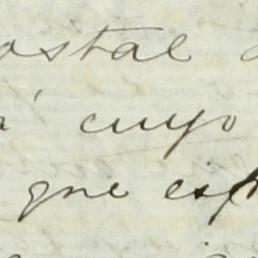 ostal
á cuyo
que esp